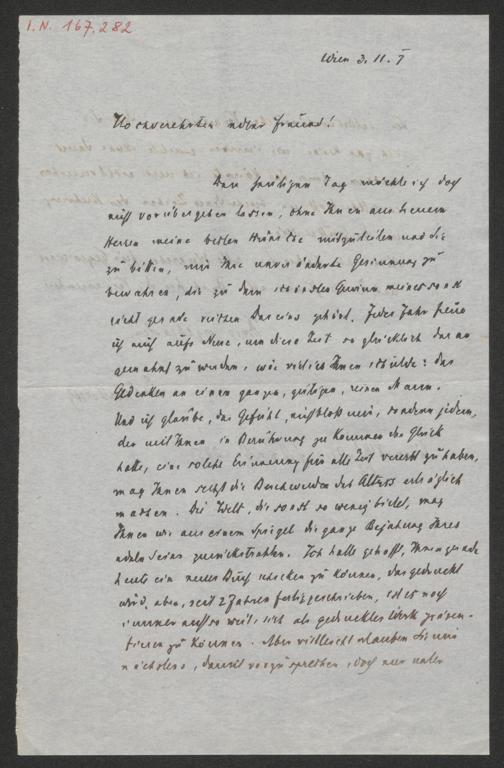 I.N. 167.282
Wien 3. 11. 7
Hochverehrter edler Freund!
Den heutigen Tag möchte ich doch
nicht vorübergehen lassen, ohne Ihnen aus treuem
Herzen meine besten Wünsche mitzuteilen und Sie
zu bitten, mir Ihre unveränderte Gesinnung zu
bewahren, die zu dem schönsten Gewinn meines sonst
nicht gerade reichen Daseins gehört. Jedes Jahr freue
ich mich aufs Neue, um diese Zeit so glücklich daran
gemahnt zu werden, wie viel ich Ihnen schulde: das
Gedenken an einen ganzen, gütigen, reinen Mann.
Und ich glaube, das Gefühl, nicht bloß mir, sondern jedem,
der mit Ihnen in Berührung zu kommen das Glück
hatte, eine solche Erinnerung für alle Zeit vererbt zu haben,
mag Ihnen selbst die Beschwerden des Alters erträglich
machen. Die Welt, die sonst so wenig bietet, mag
Ihnen wie aus einem Spiegel die ganze Bejahung Ihres
edeln Seins zurückstrahlen. Ich hatte gehofft, Ihnen gerade
heute ein neues Buch schicken zu können, das gedruckt
wird, aber, seit 2 Jahren fertig geschrieben, ist es noch
immer nicht so weit, sich als gedrucktes Werk präsen-
tieren zu können. Aber vielleicht erlauben Sie mir
nächstens, damit vorzusprechen, doch nur unter